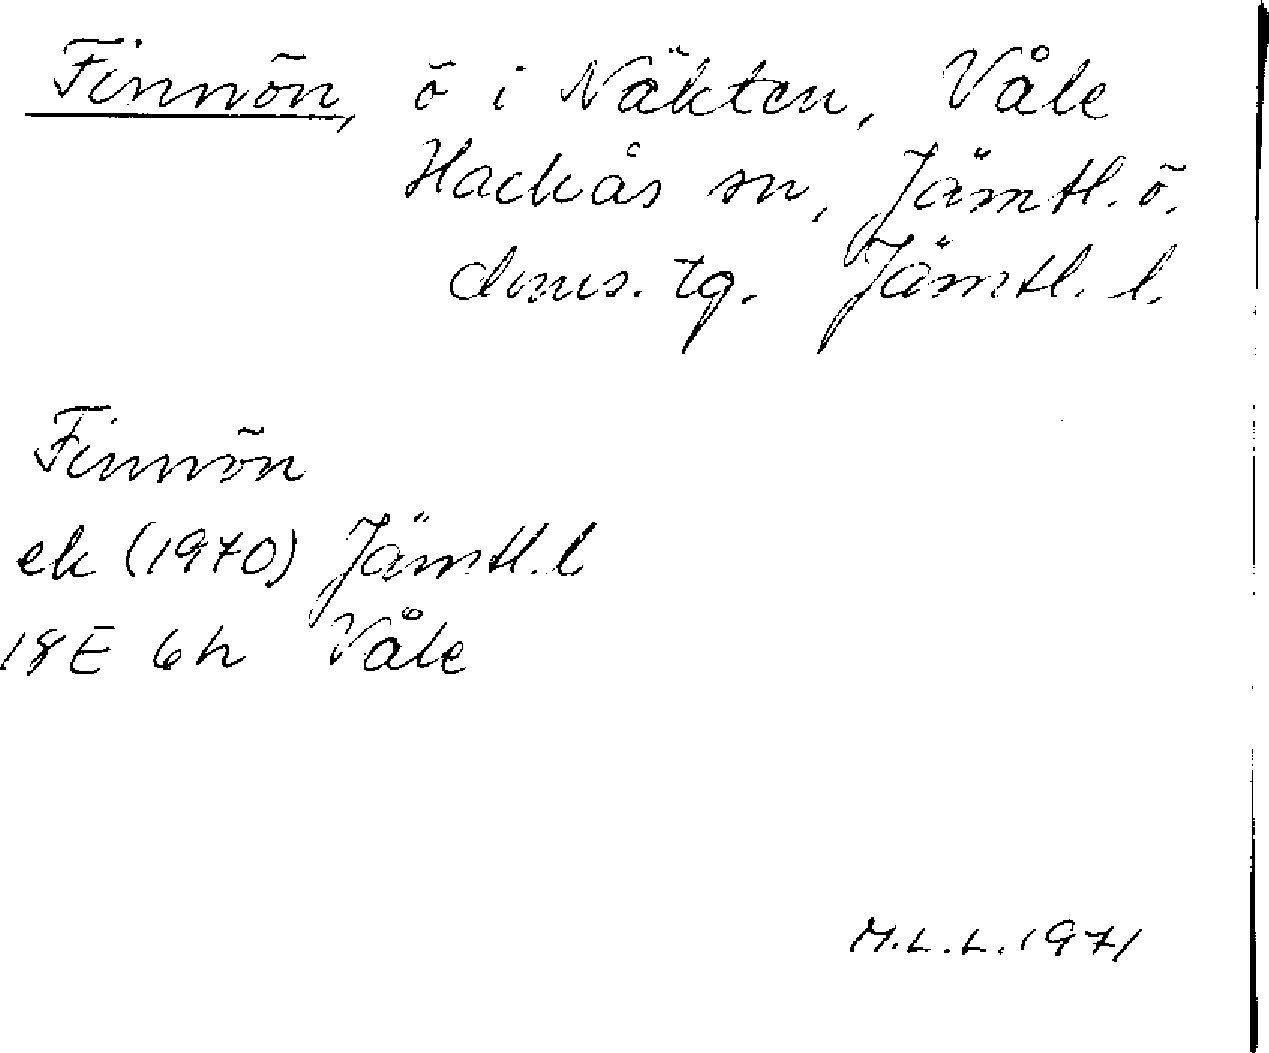 Finnön, ö i Näkten, Våle
Hackås sn, Jämtl. ö.
doms. tg. Jämtl. l.
Finnön
ek (1970) Jämtl. l
18E 6h Våle
M.L.L. 1971